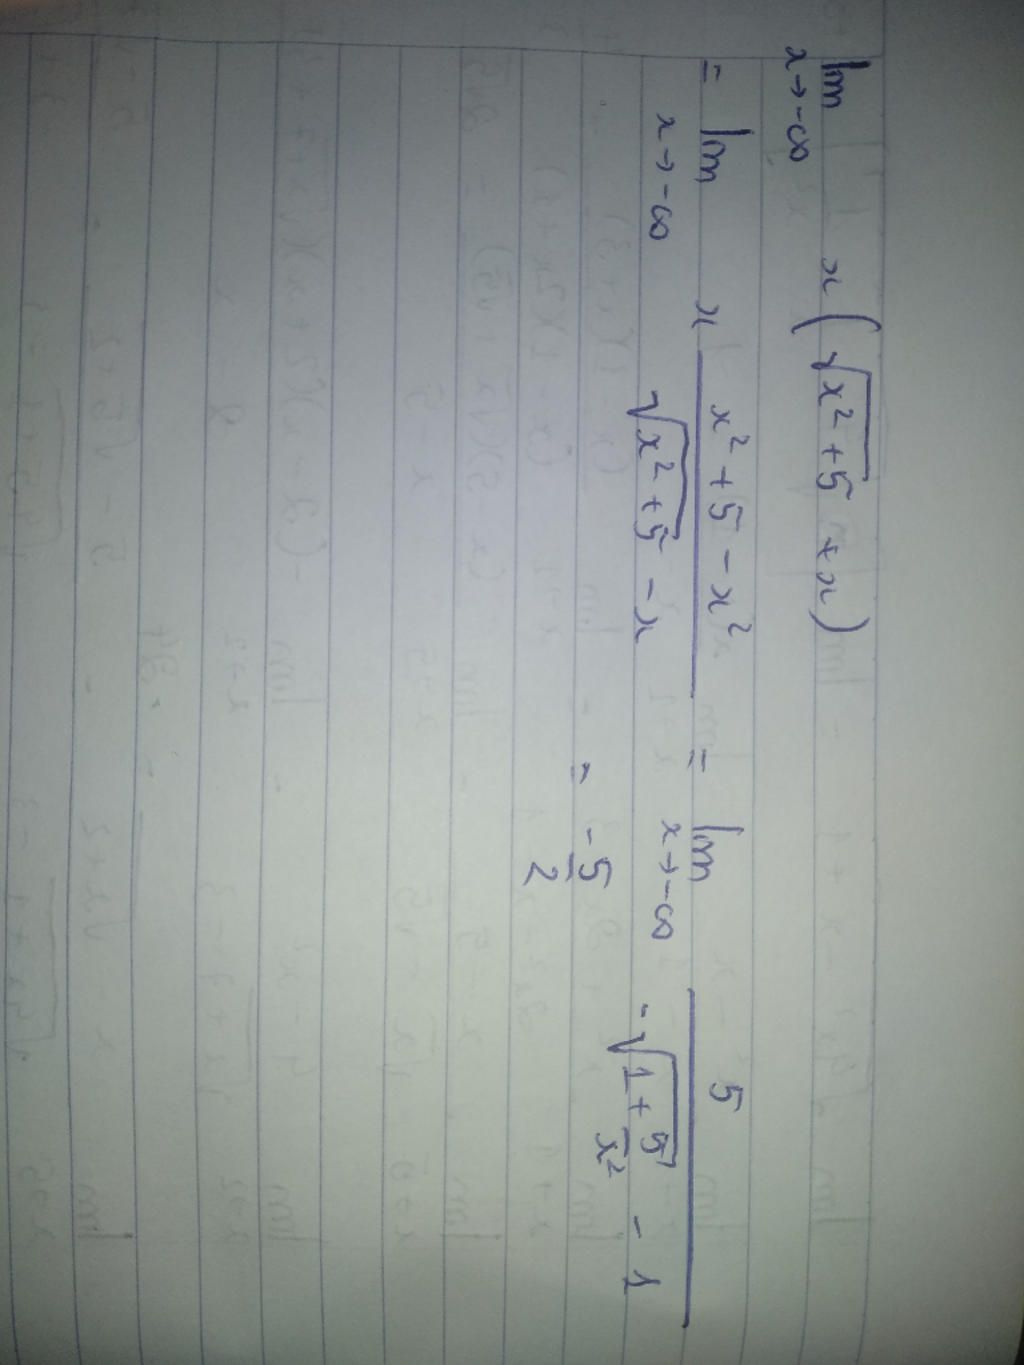 lim x→-∞ x(√(x²+5) + x)
= lim x→-∞ x (x²+5-x²)/(√(x²+5) - x) = lim x→-∞ 5/(-√(1+5/x²) - 1)
= -5/2